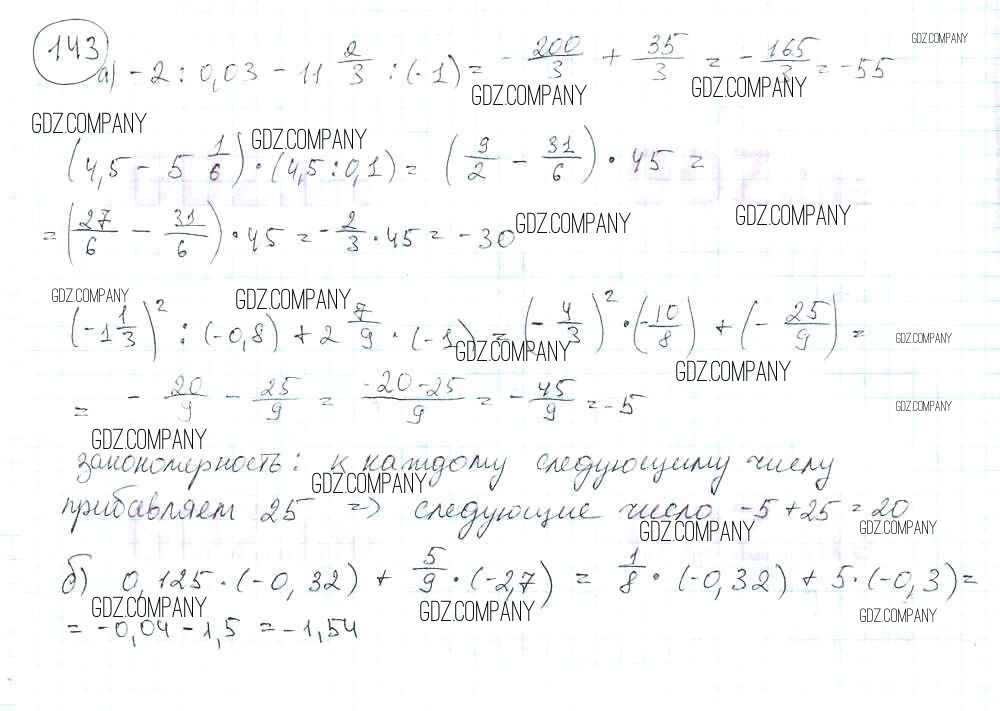 143
а) -2 : 0,03 - 11 2/3 : (-1) = - 200/3 + 35/3 = - 165/3 = -55
GDZ.COMPANY
GDZ.COMPANY GDZ.COMPANY
GDZ.COMPANY GDZ.COMPANY
(4,5 - 5 1/6) · (4,5 : 0,1) = (9/2 - 31/6) · 45 =
= (27/6 - 31/6) · 45 = - 2/3 · 45 = -30
GDZ.COMPANY GDZ.COMPANY
GDZ.COMPANY GDZ.COMPANY
(-1 1/3)² : (-0,8) + 2 7/9 · (-1) = (- 4/3)² · (-10/8) + (- 25/9) =
GDZ.COMPANY GDZ.COMPANY GDZ.COMPANY
= - 20/9 - 25/9 = -20-25/9 = - 45/9 = -5
GDZ.COMPANY
GDZ.COMPANY
закономерность: к каждому следующему числу
GDZ.COMPANY
прибавляем 25 => следующие число -5 + 25 = 20
GDZ.COMPANY GDZ.COMPANY
б) 0,125 · (-0,32) + 5/9 · (-2,7) = 1/8 · (-0,32) + 5 · (-0,3) =
GDZ.COMPANY GDZ.COMPANY GDZ.COMPANY
= -0,04 - 1,5 = -1,54